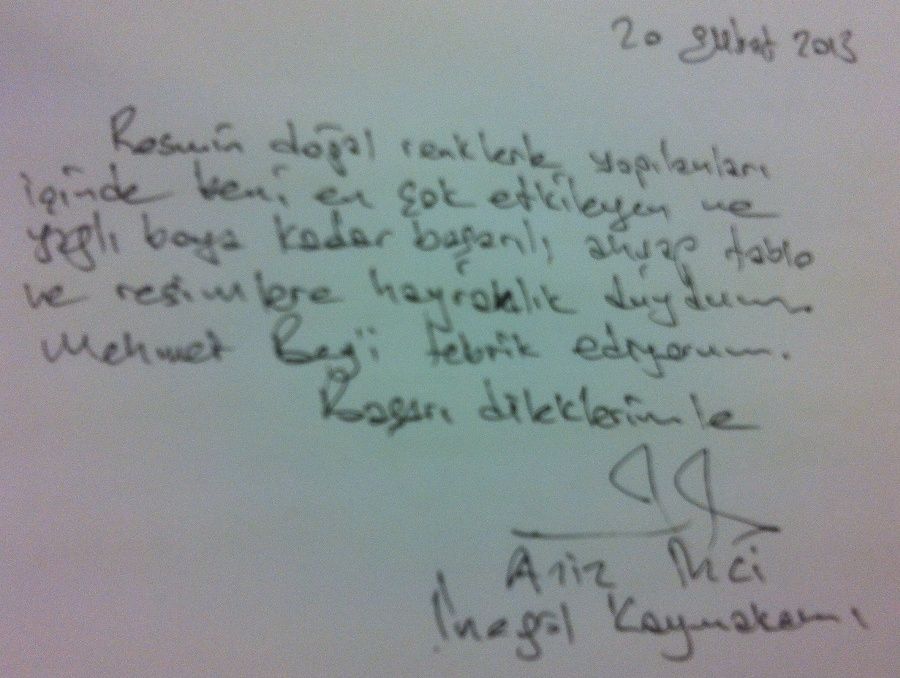 20 Şubat 2013
Resmin doğal renklerle yapılanları
içinde beni en çok etkileyen ve
yağlı boya kadar başarılı ahşap tablo
ve resimlere hayranlık duydum.
Mehmet Bey'i tebrik ediyorum.
Başarı dileklerimle
Aziz İnci
İnegöl Kaymakamı